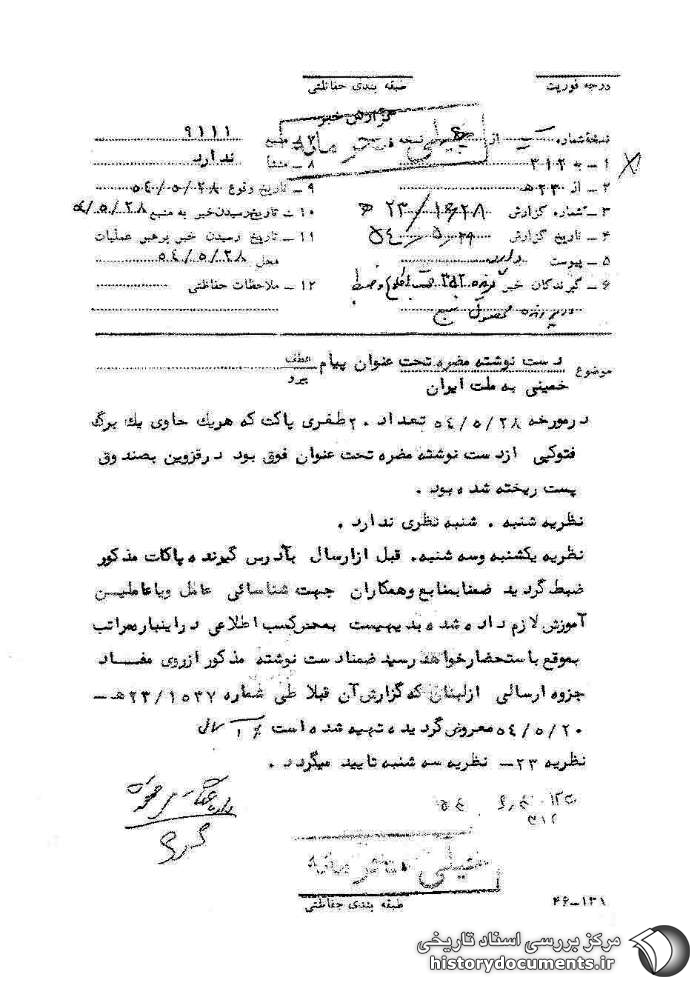 درجه فوریت
طبقه بندی حفاظتی
گزارش خبر
خیلی محرمانه
نسخه شماره از نسخه
۱ – به ۳۱۲
۲ – از ۲۳ ه
۳ – شماره گزارش ۱۶۲۸ / ۲۳ ه
۴ – تاریخ گزارش ۲۹ / ۵ / ۵۴
۵ – پیوست دارد
۶ – گیرندگان خبر
۷ – منبع ۹۱۱۱
۸ – منشأ ندارد
۹ – تاریخ وقوع ۵۴/۵/۲۸
۱۰ – تاریخ رسیدن خبر به منبع ۵۴/۵/۲۸
۱۱ – تاریخ رسیدن خبر برهبر عملیات
محل ۵۴/۵/۲۸
۱۲ – ملاحظات حفاظتی
موضوع دست نوشته مضره تحت عنوان پیام
خمینی به ملت ایران
عطف
پیرو
درمورخه ۵۴/۵/۲۸ تعداد ۲۰ طغری پاکت که هریك حاوی یك برگ
فتوکپی ازدست نوشته مضره تحت عنوان فوق بود درقزوین بصندوق
پست ریخته شده بود .
نظریه شنبه . شنبه نظری ندارد .
نظریه یکشنبه وسه شنبه. قبل ازارسال بآدرس گیرنده پاکات مذکور
ضبط گردید ضمنابمنابع وهمکاران جهت شناسائی عامل ویاعاملیـن
آموزش لازم داده شده بدیهیست بمحض کسب اطلاعی دراینباره مراتب
بموقع باستحضارخواهد رسید ضمنادست نوشته مذکور ازروی مفـــاد
جزوه ارسالی ازلبنان که گزارش آن قبلا طی شماره ۲۳/۱۵۴۷هـ –
۵۴/۵/۲۰ معروض گردیده تهیه شده است
نظریه ۲۳ – نظریه سه شنبه تایید میگردد .
۳۱۲
خیلی محرمانه
طبقه بندی حفاظتی
۴۶–۱۳۱
مرکز بررسی اسناد تاریخی
historydocuments.ir